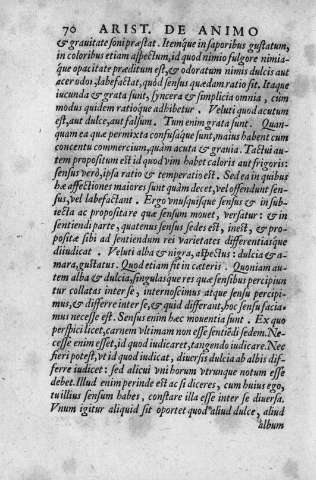 70 ARIST. DE ANIMO
& grauitate soni præstat. Itemque in saporibus gustatum,
in coloribus etiam aspectum, id quod nimio fulgore nimia-
que opacitate præditum est, & odoratum nimis dulcis aut
acerodor, labefactat, quòd sensus quædam ratio sit. Itaque
iucunda & grata sunt, syncera & simplicia omnia, cùm
modus quidem ratioque adhibetur. Veluti quod acutum
est, aut dulce, aut falsum. Tum enim grata sunt. Quan-
quam ea quæ permixta confusaque sunt, maius habent cum
concentu commercium, quàm acuta & grauia. Tactui au-
tem propositum est id quod vim habet caloris aut frigoris:
sensus verò, ipsa ratio & temperatio est. Sed ea in quibus
hæ affectiones maiores sunt quàm decet, vel offendunt sen-
sus, vel labefactant. Ergo vnusquisque sensus & in sub-
iecta ac propositare quæ sensum mouet, versatur: & in
sentiendi parte, quatenus sensus sedes est, inest, & pro-
positæ sibi ad sentiendum rei varietates differentiasque
diiudicat. Veluti alba & nigra, aspectus: dulcia & a-
mara, gustatus. Quod etiam sit in cæteris. Quoniam au-
tem alba & dulcia, singulasque res quæ sensibus percipiun
tur collatas inter se, internoscimus atque sensu percipi-
mus, & differre inter se, & quid differant, hoc sensu facia-
mus necesse est. Sensus enim hæc mouentia sunt. Ex quo
perspici licet, carnem vltimam non esse sentiẽdi sedem. Ne-
cesse enim esset, id quod iudicaret, tangendo iudicare. Nec
fieri potest, vt id quod iudicat, diuersis dulcia ab albis dif-
ferre iudicet: sed alicui vni horum vtrunque notum esse
debet. Illud enim perinde est ac si diceres, cum huius ego,
tu illius sensum habes, constare illa esse inter se diuersa.
Vnum igitur aliquid sit oportet quod aliud dulce, aliud
album